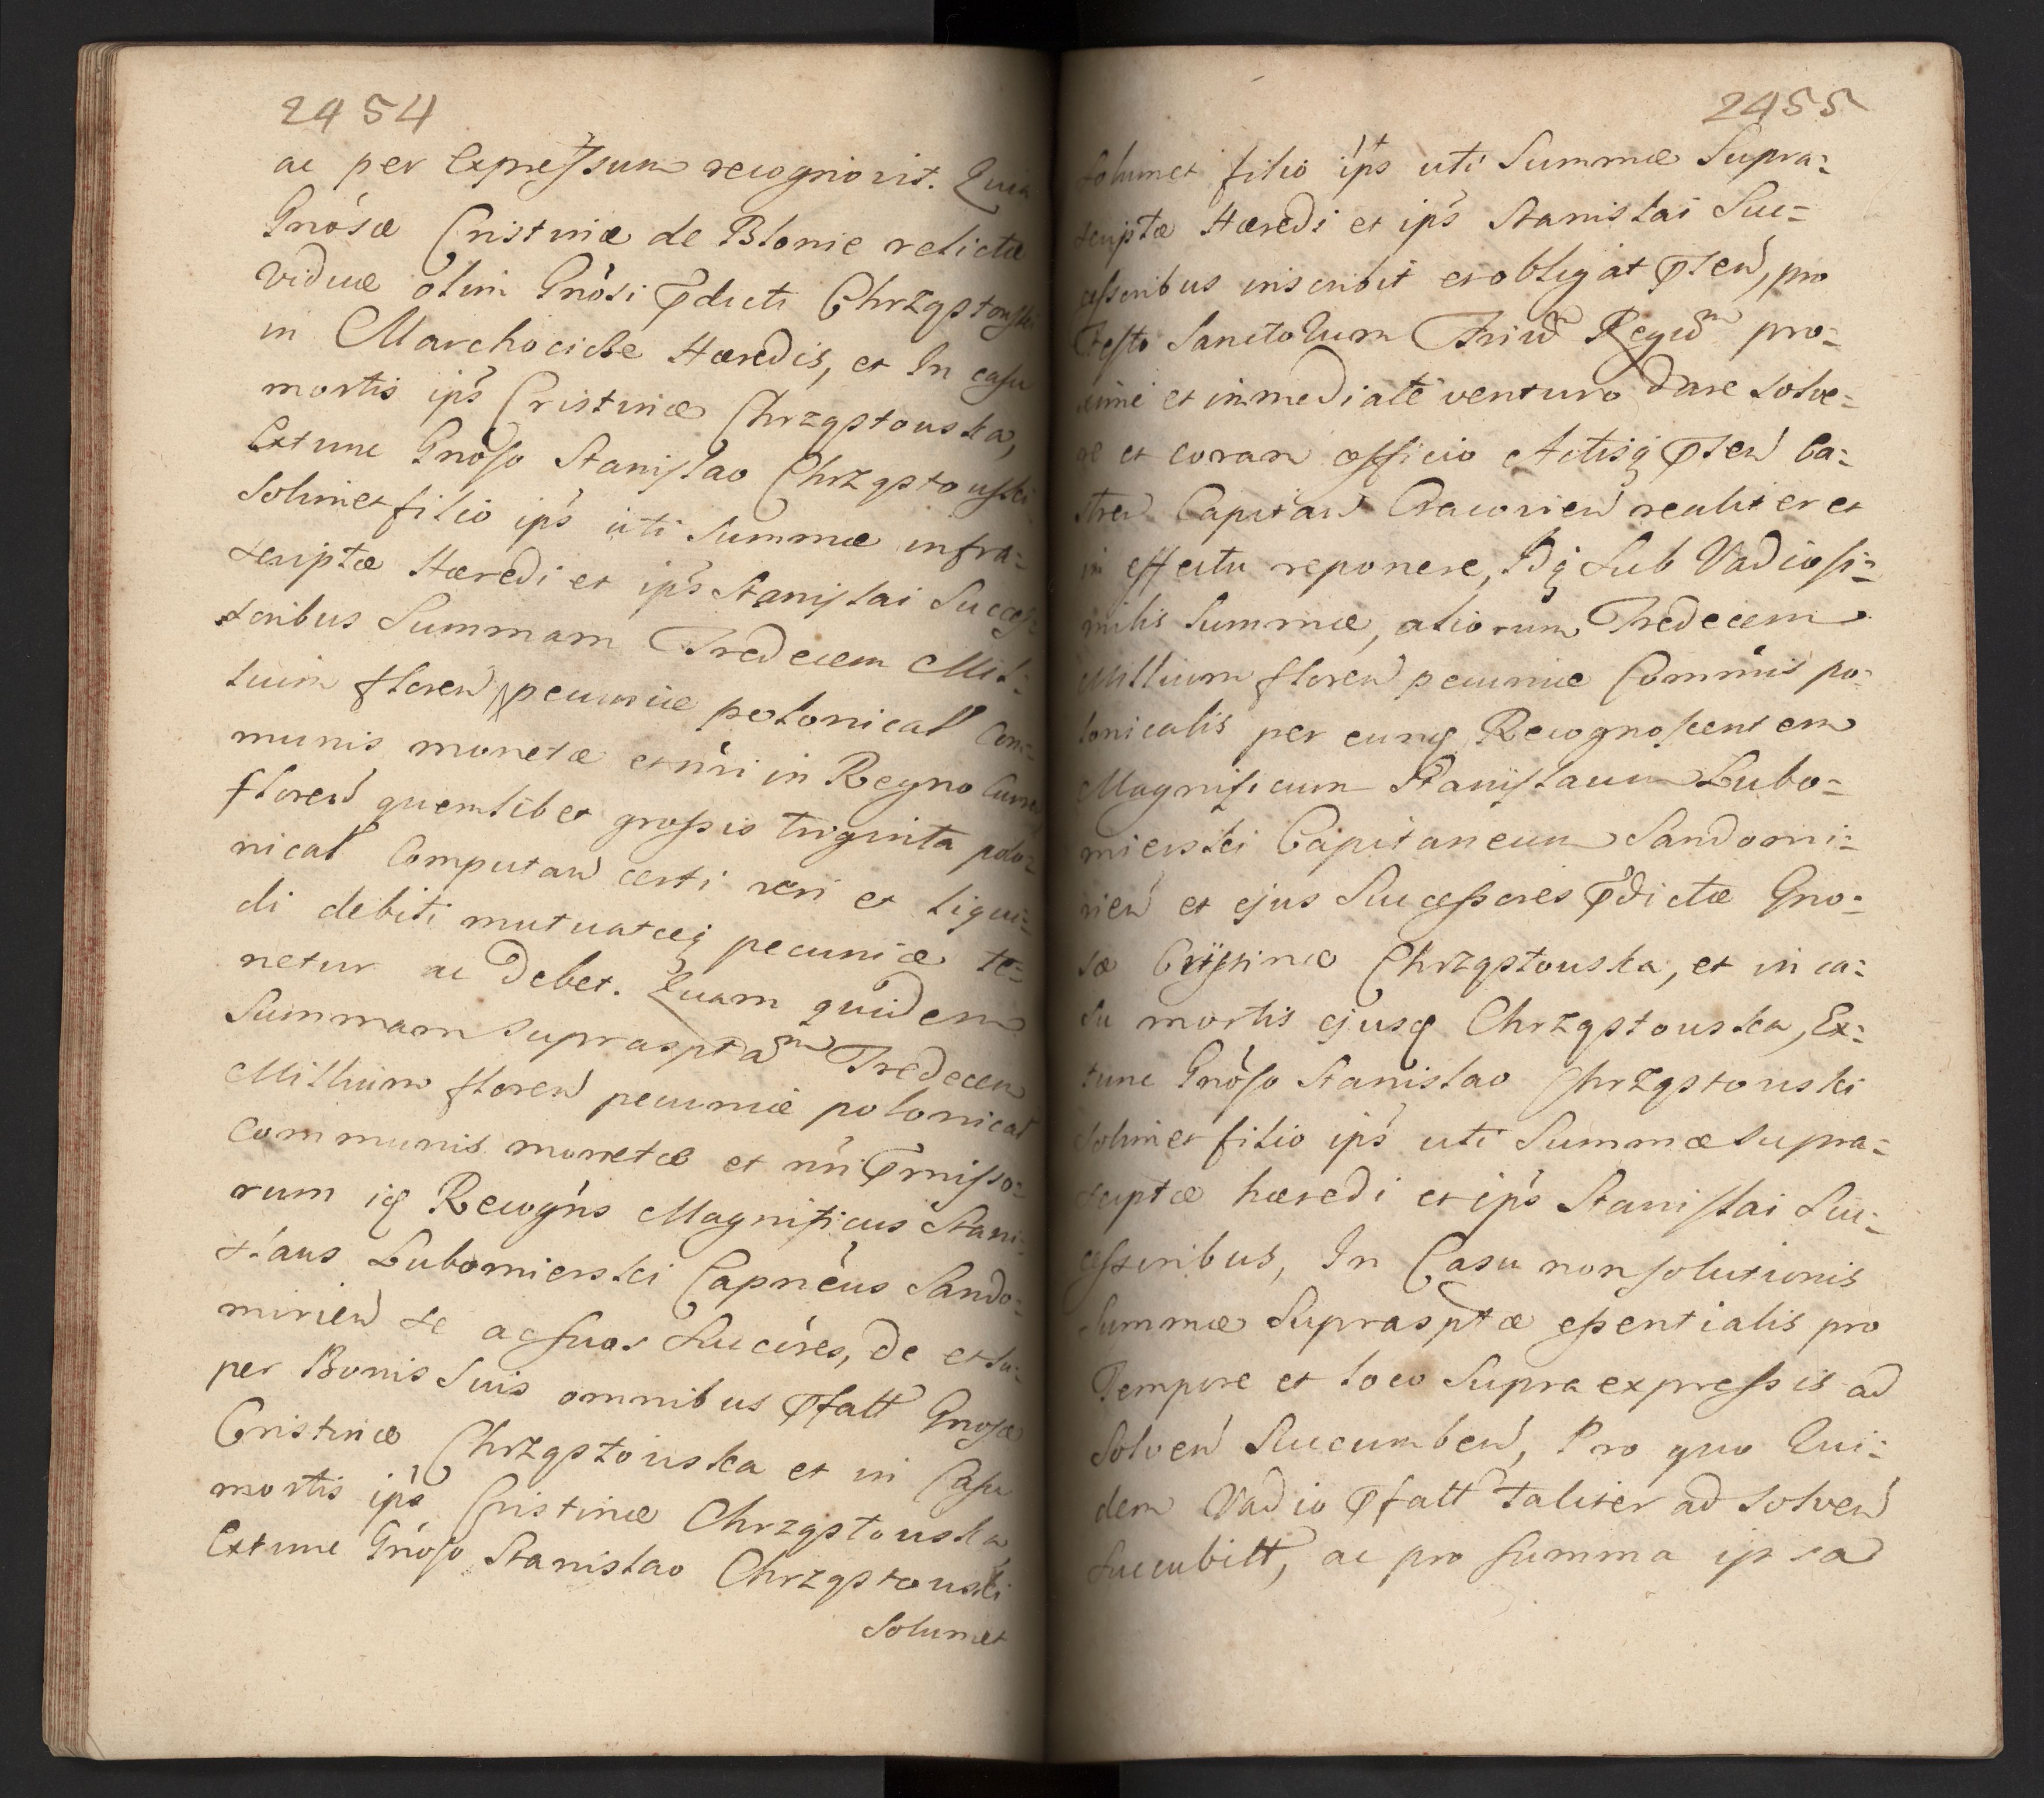 2454
ac per Expressum recognovit. Quia
Gnosæ Cristinæ de Blonie relictæ
Viduæ olim Gnosi Pdicti Chrząstowski
in Marchocicze Hæredis, et In casu
mortis ips Cristinæ Chrząstouska,
Extunc Gnoso Stanislao Chrząstouski
Solimet filio ips uti Summæ infra=
scriptæ Hæredi et ips Stanislai Succes=
soribus Summam Tredecem Mil=
lium floren pecuniæ polonical Com=
munis monetæ et nri in Regno Cursus
floren quemlibet grossis triginta polo=
nical Computan certi veri et liqui=
di debiti mutuatæq pecuniæ te=
netur ac Debet. Quam quidem
Summam suprasptam Tredecem
Millium floren pecuniæ polonical
communis monetæ et nri Pmisso=
rum iq Recogns Magnificus Stani=
slaus Lubomierski Capneus Sando=
mirien se ac suos Succres, de et su=
per Bonis Suis omnibus Pfatt Gnosæ
Cristinæ Chrząstouska et in Casu
mortis ips Cristinæ Chrząstouska
Extunc Gnoso Stanislao Chrząstouski
Solimet
2455
Solimet filio ips uti Summæ Supra=
scriptæ Hæredi et ips Stanislai Suc=
cessoribus inscribit et obligat Psen, pro
Festo Sanctorum Trium Regum pro=
ximè et immediatè venturo Dare solve=
re et coram officio Actisq Psen Ca=
stren Capitan Cracovien realiter et
in effectu reponere, Idq Sub Vadio si=
milis Summæ, aliorum Tredecem
Millium floren pecuniæ Commis po=
lonicalis per eunq Recognoscentem
Magnificum Stanislaum Lubo=
mierski Capitaneum Sandomi=
rien et ejus Successores Pdictæ Gno=
sæ Cristinæ Chrząstouska, et in ca=
su mortis ejusq Chrząstouska, Ex=
tunc Gnoso Stanislao Chrząstouski
Solimet filio ips uti Summæ supra=
scriptæ hæredi et ips Stanislai Suc=
cessoribus, In Casu non solutionis
Summæ Suprasptæ essentialis pro
Tempore et loco Supra expressis ad
Solven Sucumben, Pro quo Qui=
dem Vadio Pfatt taliter ad solven
succubitt, ac pro summa ipsa